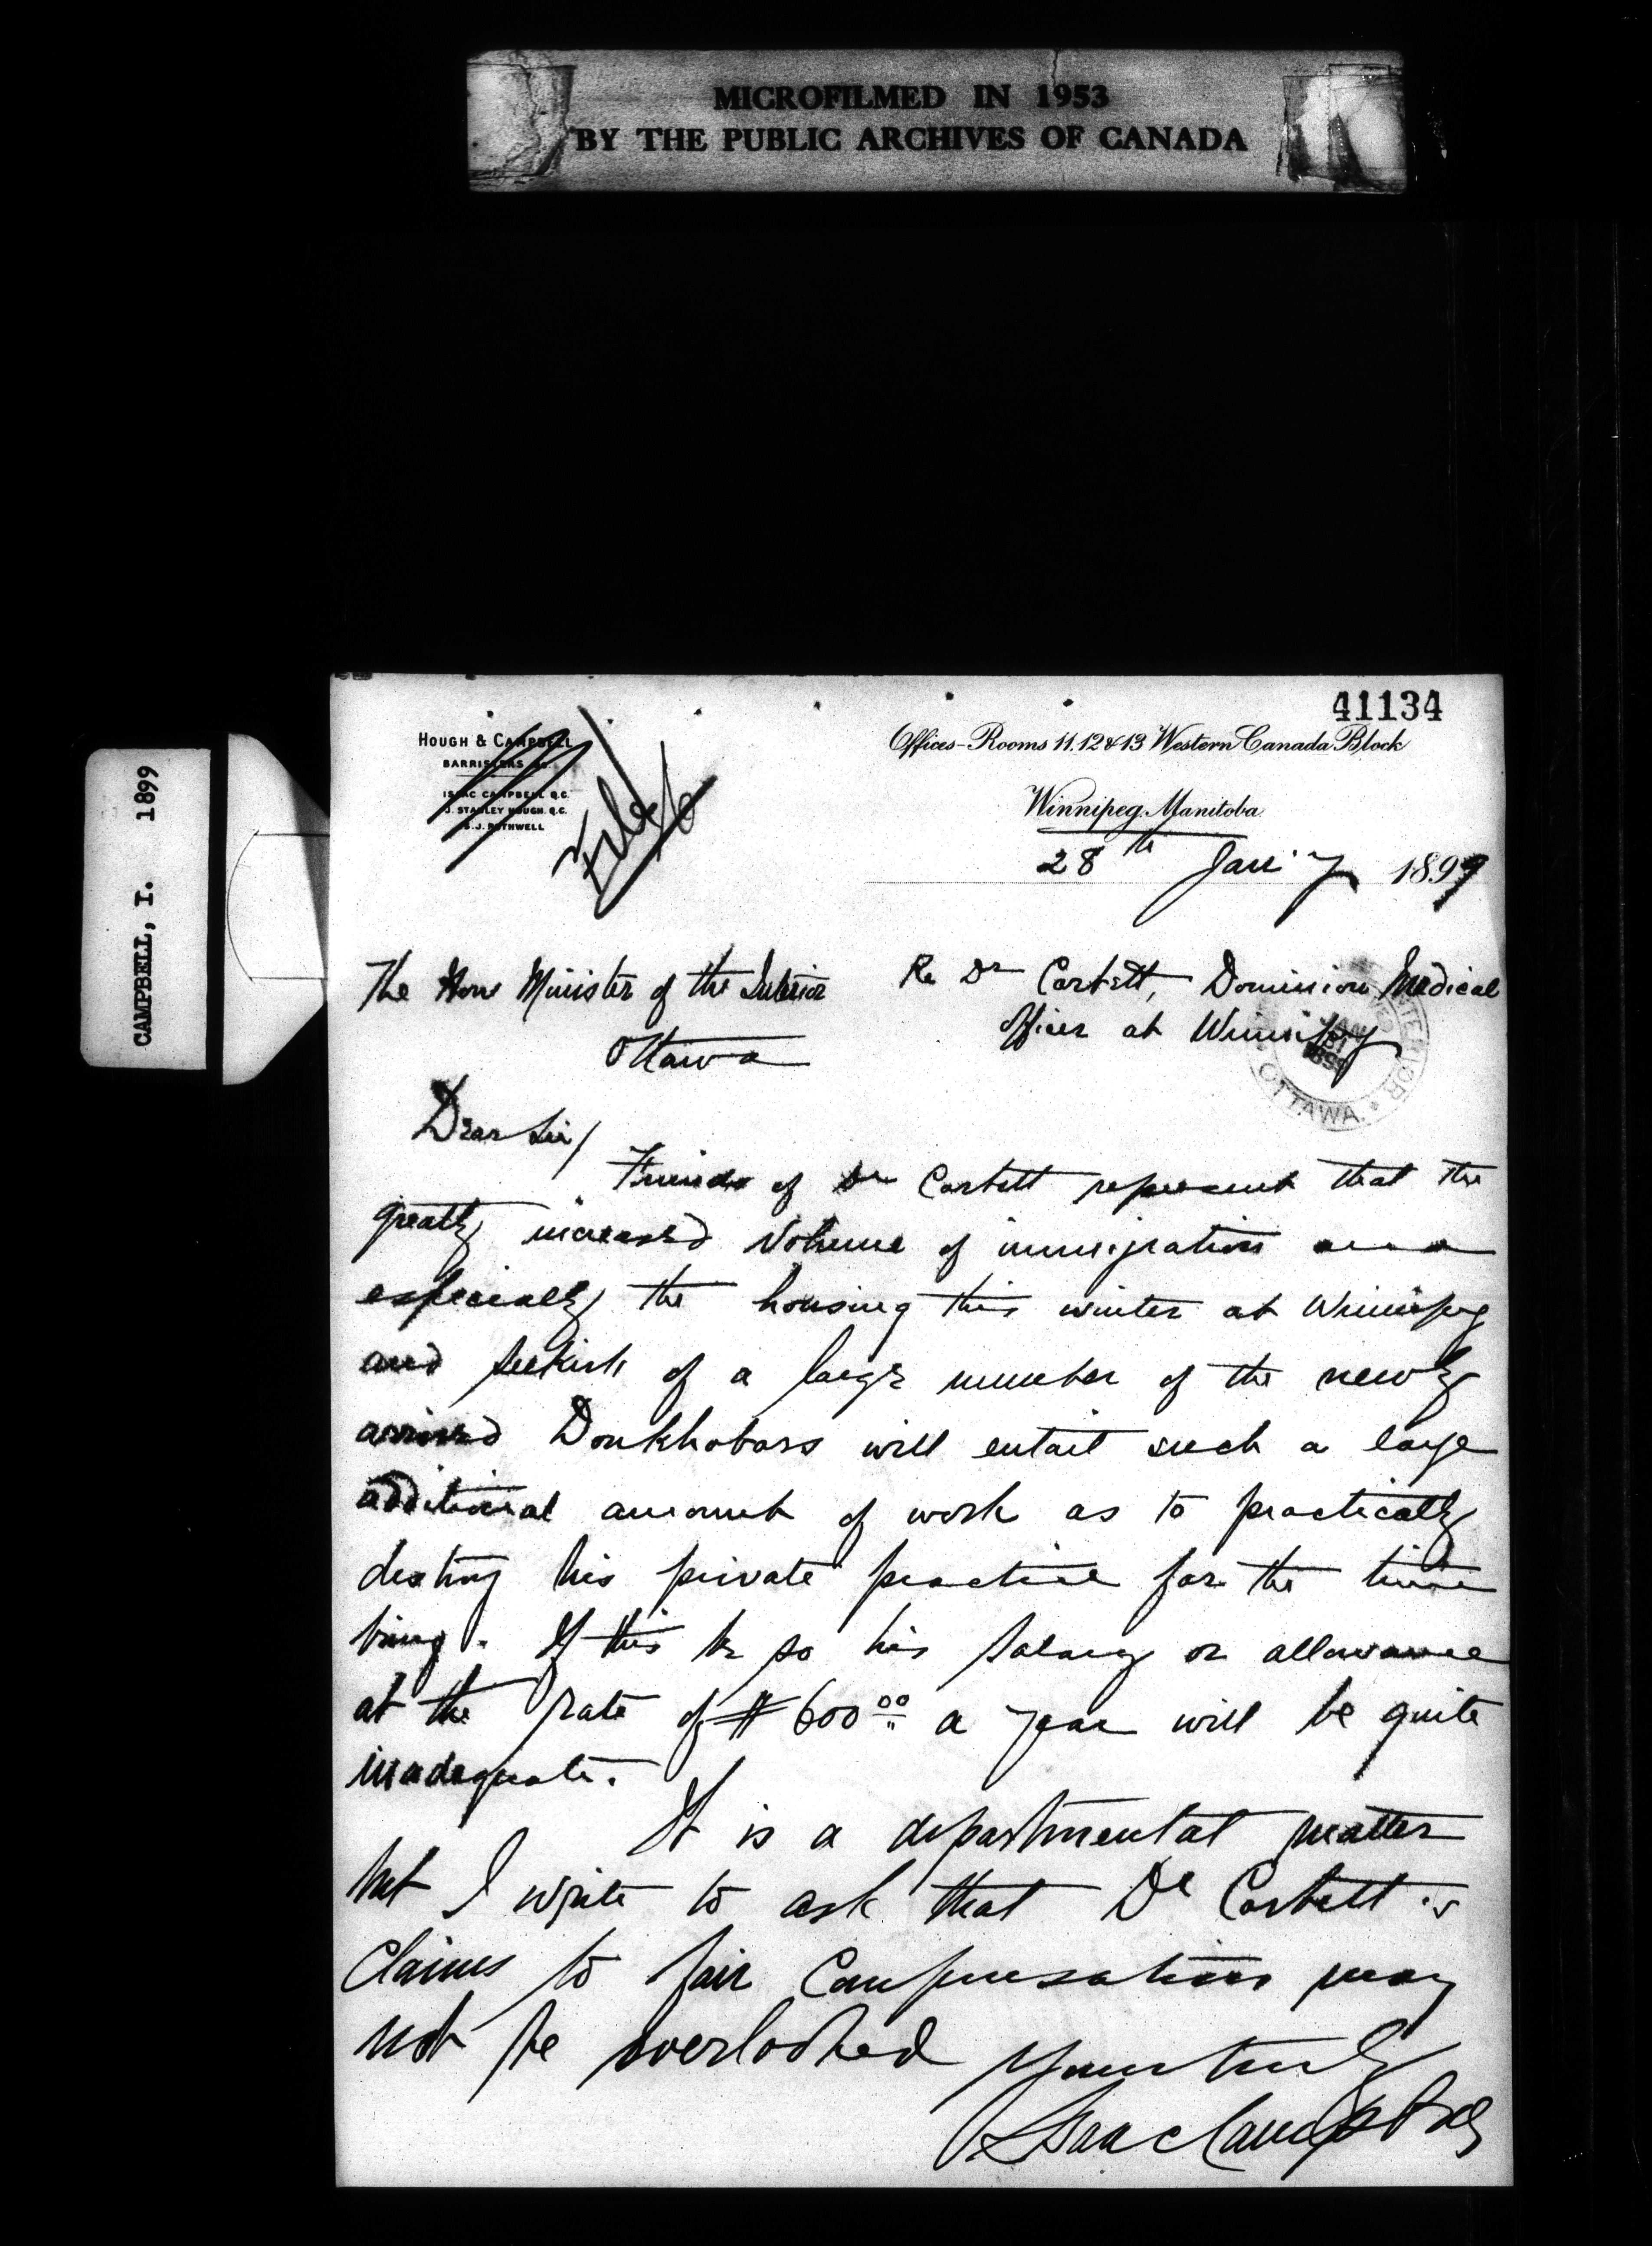 MICROFILMED IN 1953
BY THE PUBLIC ARCHIVES OF CANADA
CAMPBELL, I. 1899
41134
HOUGH & CAMPBELL
BARRISTERS &c.
ISAAC CAMPBELL Q.C.
J. STANLEY HOUGH. Q.C.
S.J. ROTHWELL
File
Offices-Rooms 11.12 & 13 Western Canada Block
Winnipeg. Manitoba.
28th Jan'y 1899
The Hon Minister of the Interior
Ottawa
Re Dr Corbett, Dominion Medical
Officer at Winnipeg
INTERIOR
JAN
31
1899
OTTAWA
Dear Sir/
Friends of Dr Corbett represent that the
greatly increased volume of immigration and
especially the housing this winter at Winnipeg
and Selkirk of a large number of the newly
arrived Doukhobors will entail such a large
additional amount of work as to practically
destroy his private practice for the time
being. If this be so his salary or allowance
at the rate of $600.00 a year will be quite
inadequate.
It is a departmental matter
but I write to ask that Dr Corbett's
claims to fair compensation may
not be overlooked
Yours truly
Isaac Campbell